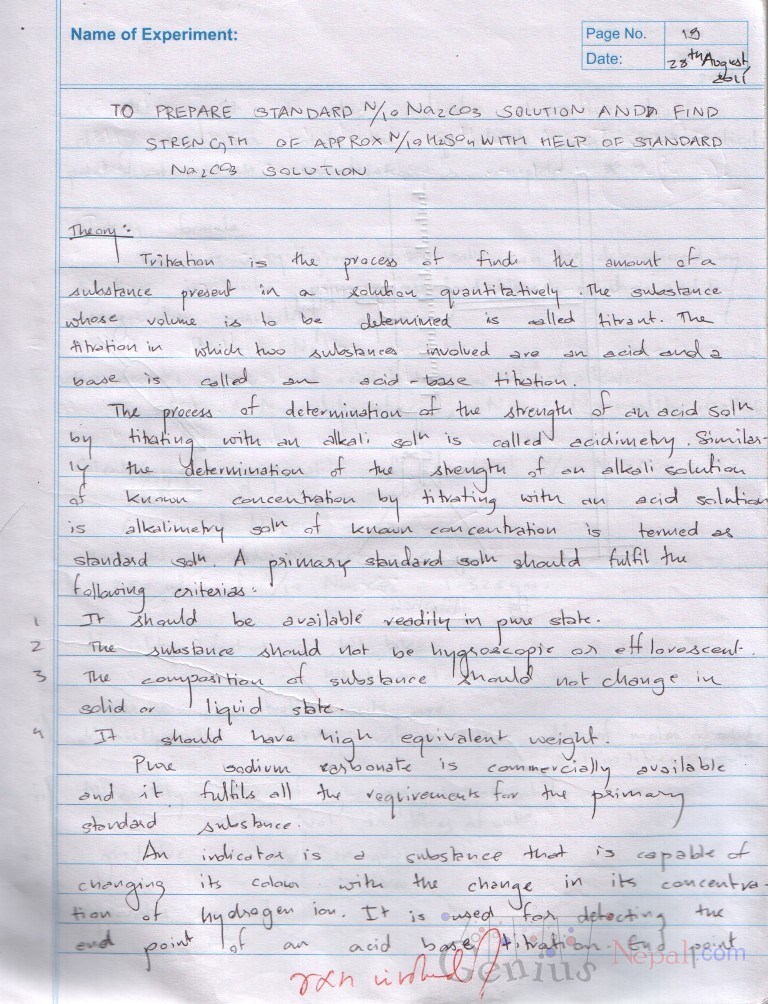 Name of Experiment:
Page No. 19
Date: 28th August, 2011
TO PREPARE STANDARD N/10 Na2CO3 SOLUTION AND FIND
STRENGTH OF APPROX N/10 H2SO4 WITH HELP OF STANDARD
Na2CO3 SOLUTION
Theory:
Tritration is the process of find the amount of a
substance present in a solution quantitatively. The substance
whose volume is to be determined is called titrant. The
titration in which two substances involved are an acid and a
base is called an acid-base titration.
The process of determination of the strength of an acid soln
by titrating with an alkali soln is called acidimetry. Similar-
ly the determination of the strength of an alkali solution
of known concentration by titrating with an acid solution
is alkalimetry soln of known concentration is termed as
standard soln. A primary standard soln should fulfil the
following criterias:
1 It should be available readily in pure state.
2 The substance should not be hygroscopic or efflorescent.
3 The composition of substance should not change in
solid or liquid state.
4 It should have high equivalent weight.
Pure sodium carbonate is commercially available
and it fulfils all the requirements for the primary
standard substance.
An indicator is a substance that is capable of
changing its colour with the change in its concentra-
tion of hydrogen ion. It is used for detecting the
end point of an acid base titration. End point
rxn involved?
Genius Nepal.com